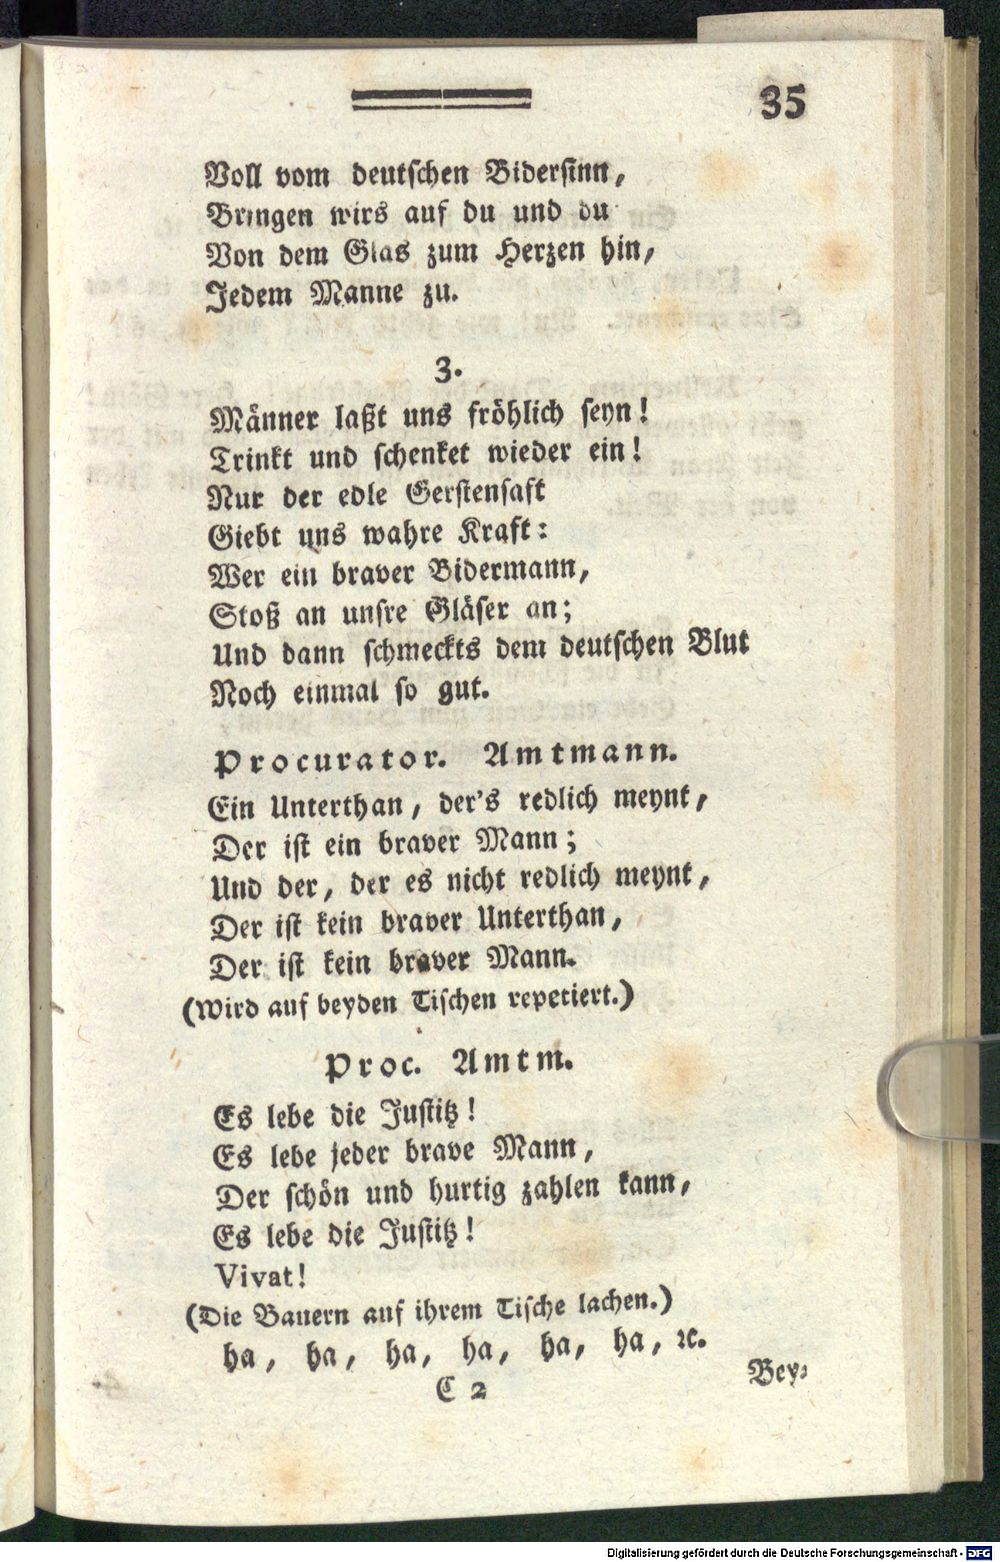 35
Voll vom deutschen Bidersinn,
Bringen wirs auf du und du
Von dem Glas zum Herzen hin,
Jedem Manne zu.
3.
Männer laßt uns fröhlich seyn!
Trinkt und schenket wieder ein!
Nur der edle Gerstensaft
Giebt uns wahre Kraft:
Wer ein braver Bidermann,
Stoß an unsre Gläser an;
Und dann schmeckts dem deutschen Blut
Noch einmal so gut.
Procurator. Amtmann.
Ein Unterthan, der's redlich meynt,
Der ist ein braver Mann;
Und der, der es nicht redlich meynt,
Der ist kein braver Unterthan,
Der ist kein braver Mann.
(Wird auf beyden Tischen repetiert.)
Proc. Amtm.
Es lebe die Justitz!
Es lebe jeder brave Mann,
Der schön und hurtig zahlen kann,
Es lebe die Justitz!
Vivat!
(Die Bauern auf ihrem Tische lachen.)
ha, ha, ha, ha, ha, ha, ꝛc.
C 2
Bey⸗
Digitalisierung gefördert durch die Deutsche Forschungsgemeinschaft - DFG